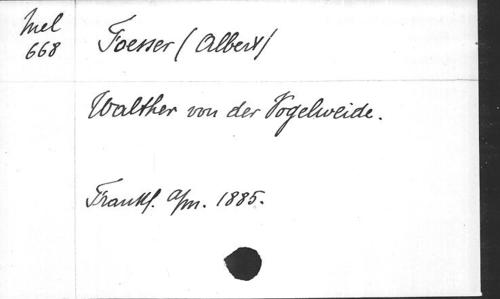 Mel
668
Foesser (Albert)
Walther von der Vogelweide.
Frankf. a/m. 1885.